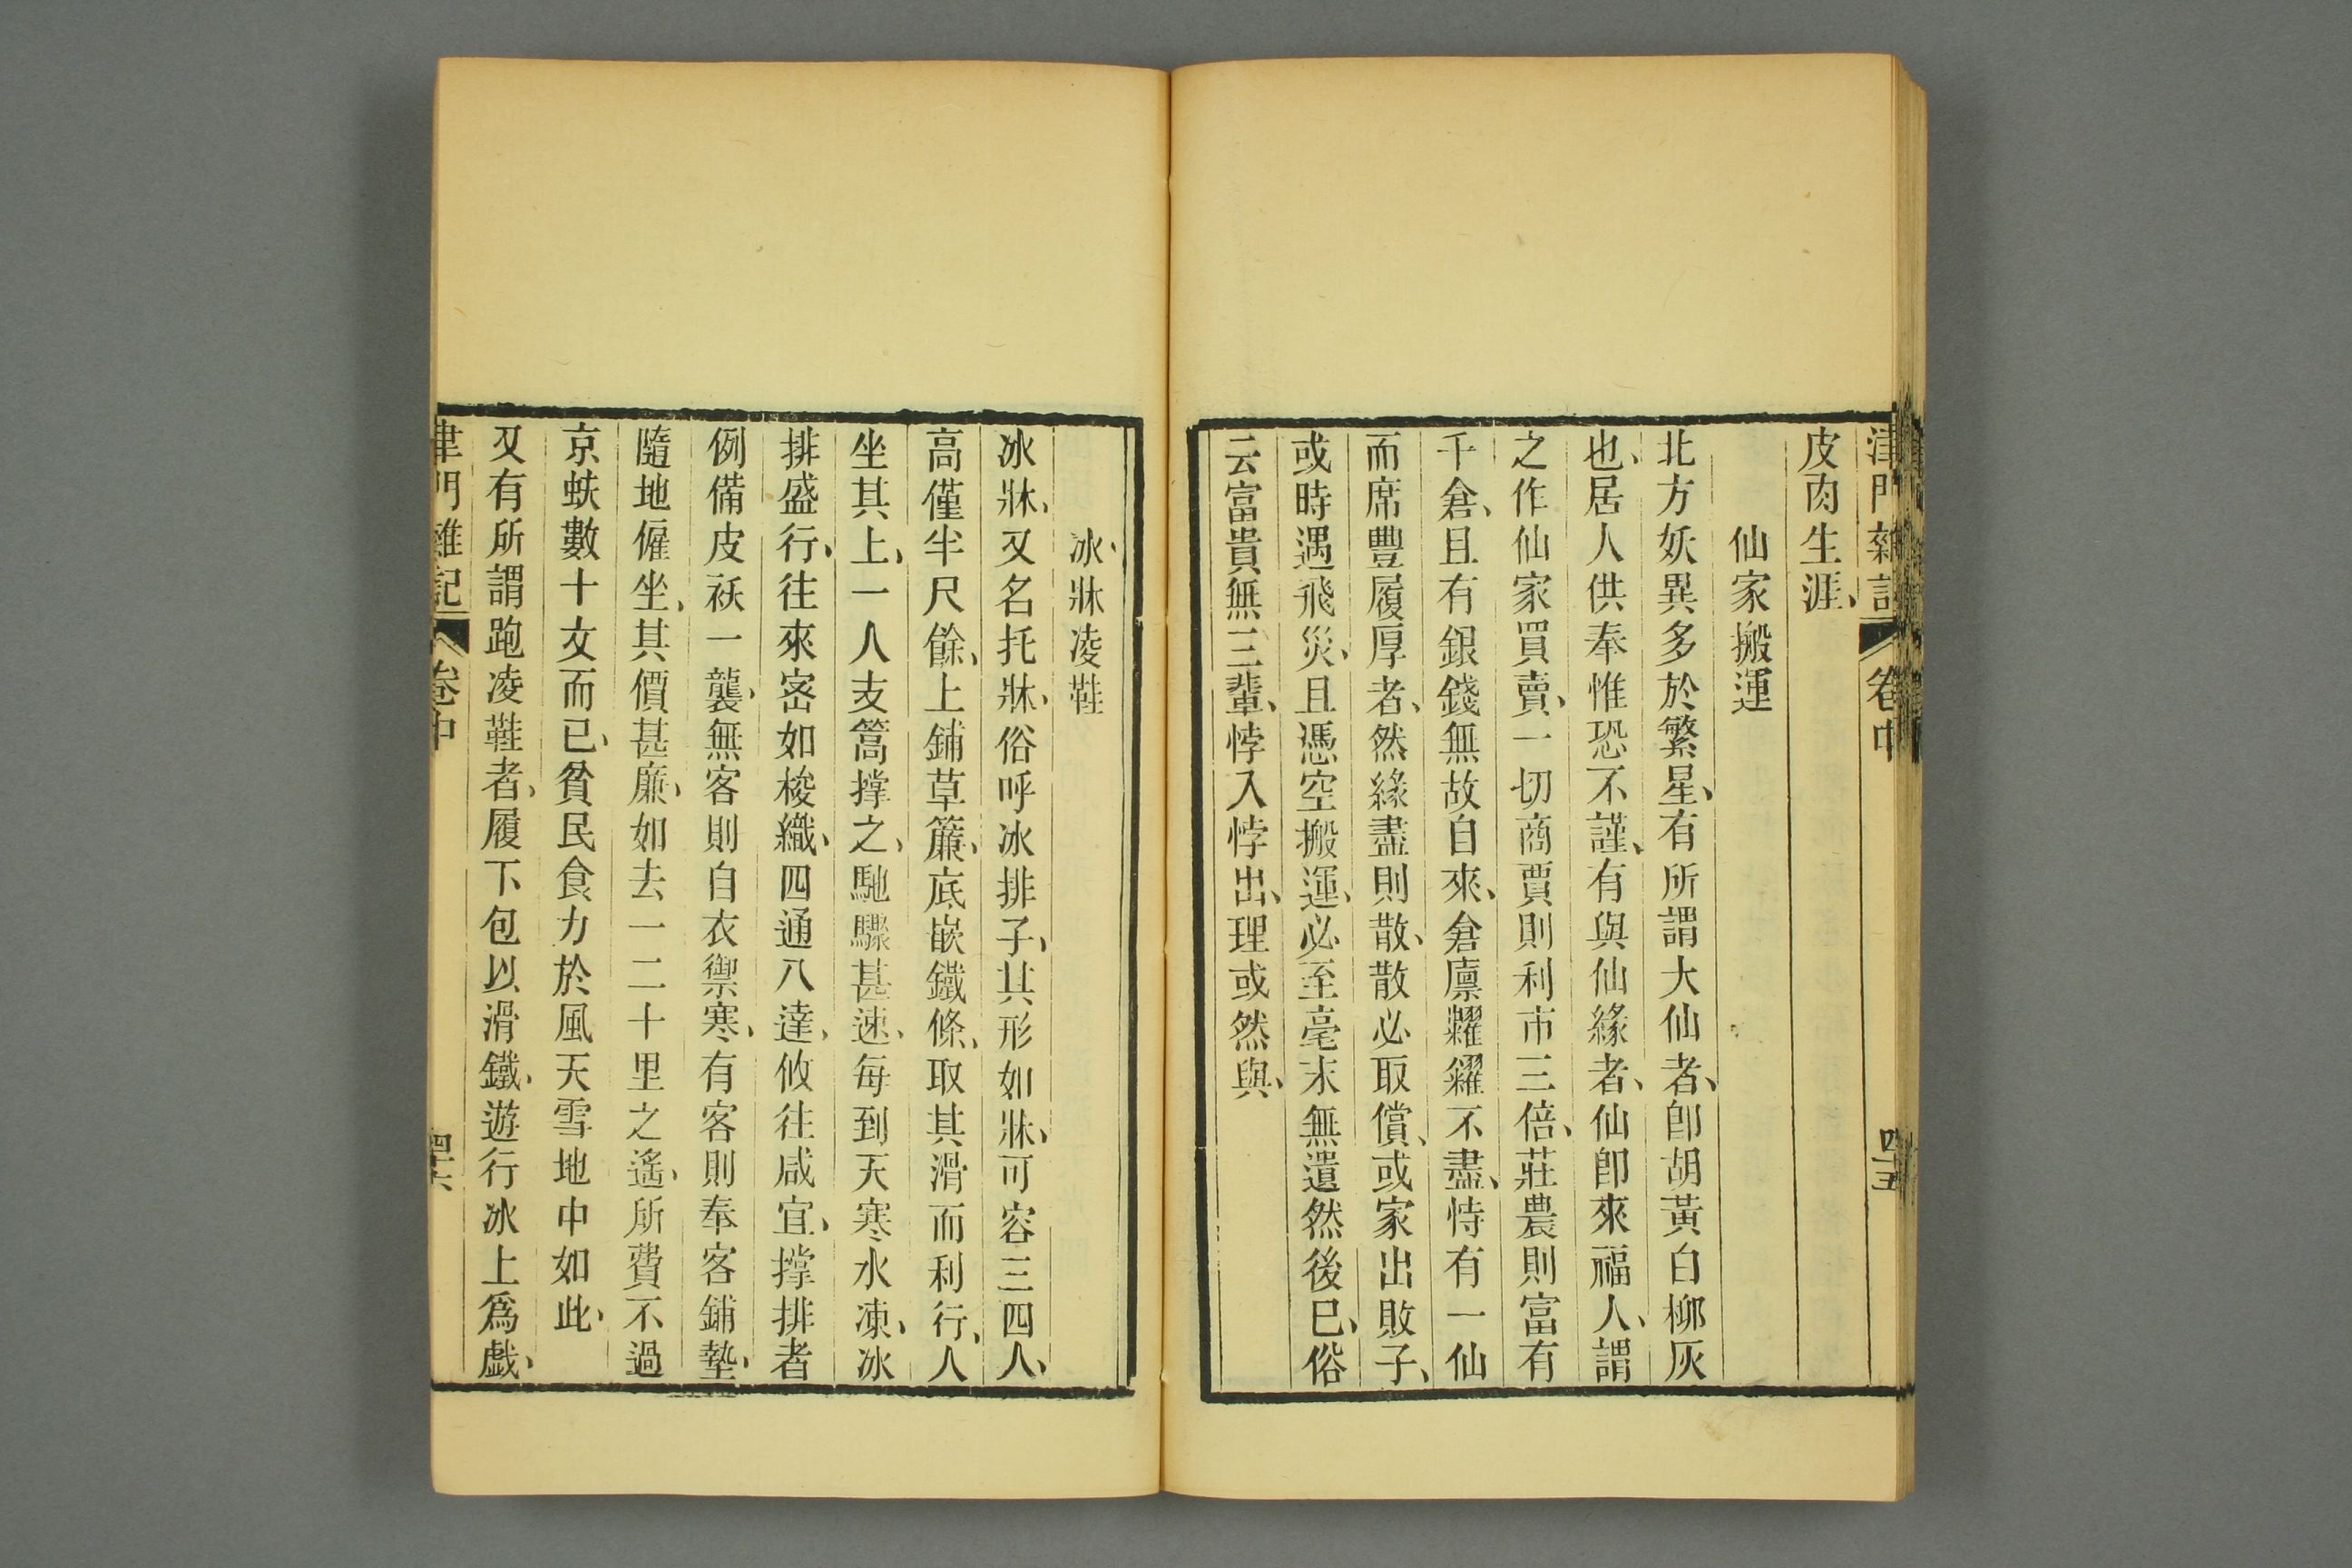 津門雜記 卷中 四十五
皮肉生涯、
仙家搬運
北方妖異多於繁星、有所謂大仙者、卽胡黃白柳灰
也、居人供奉惟恐不謹、有與仙緣者、仙卽來福人、謂
之作仙家買賣、一切商賈則利市三倍、莊農則富有
千倉、且有銀錢無故自來、倉廩糶糴不盡、恃有一仙
而席豐履厚者、然緣盡則散、散必取償、或家出敗子、
或時遇飛災、且憑空搬運、必至毫末無遺然後已、俗
云富貴無三輩、悖入悖出、理或然與、
冰牀凌鞋
冰牀、又名托牀、俗呼冰排子、其形如牀、可容三四人、
高僅半尺餘、上鋪草簾、底嵌鐵條、取其滑而利行、人
坐其上、一人支篙撑之、馳驟甚速、每到天寒水凍、冰
排盛行、往來宻如梭織、四通八達、攸往咸宜、撑排者
例備皮袄一襲、無客則自衣禦寒、有客則奉客鋪墊、
隨地僱坐、其價甚廉、如去一二十里之遙、所費不過
京蚨數十文而已、貧民食力於風天雪地中如此、
又有所謂跑凌鞋者、履下包以滑鐵、遊行冰上爲戲、
津門雜記 卷中 四十六